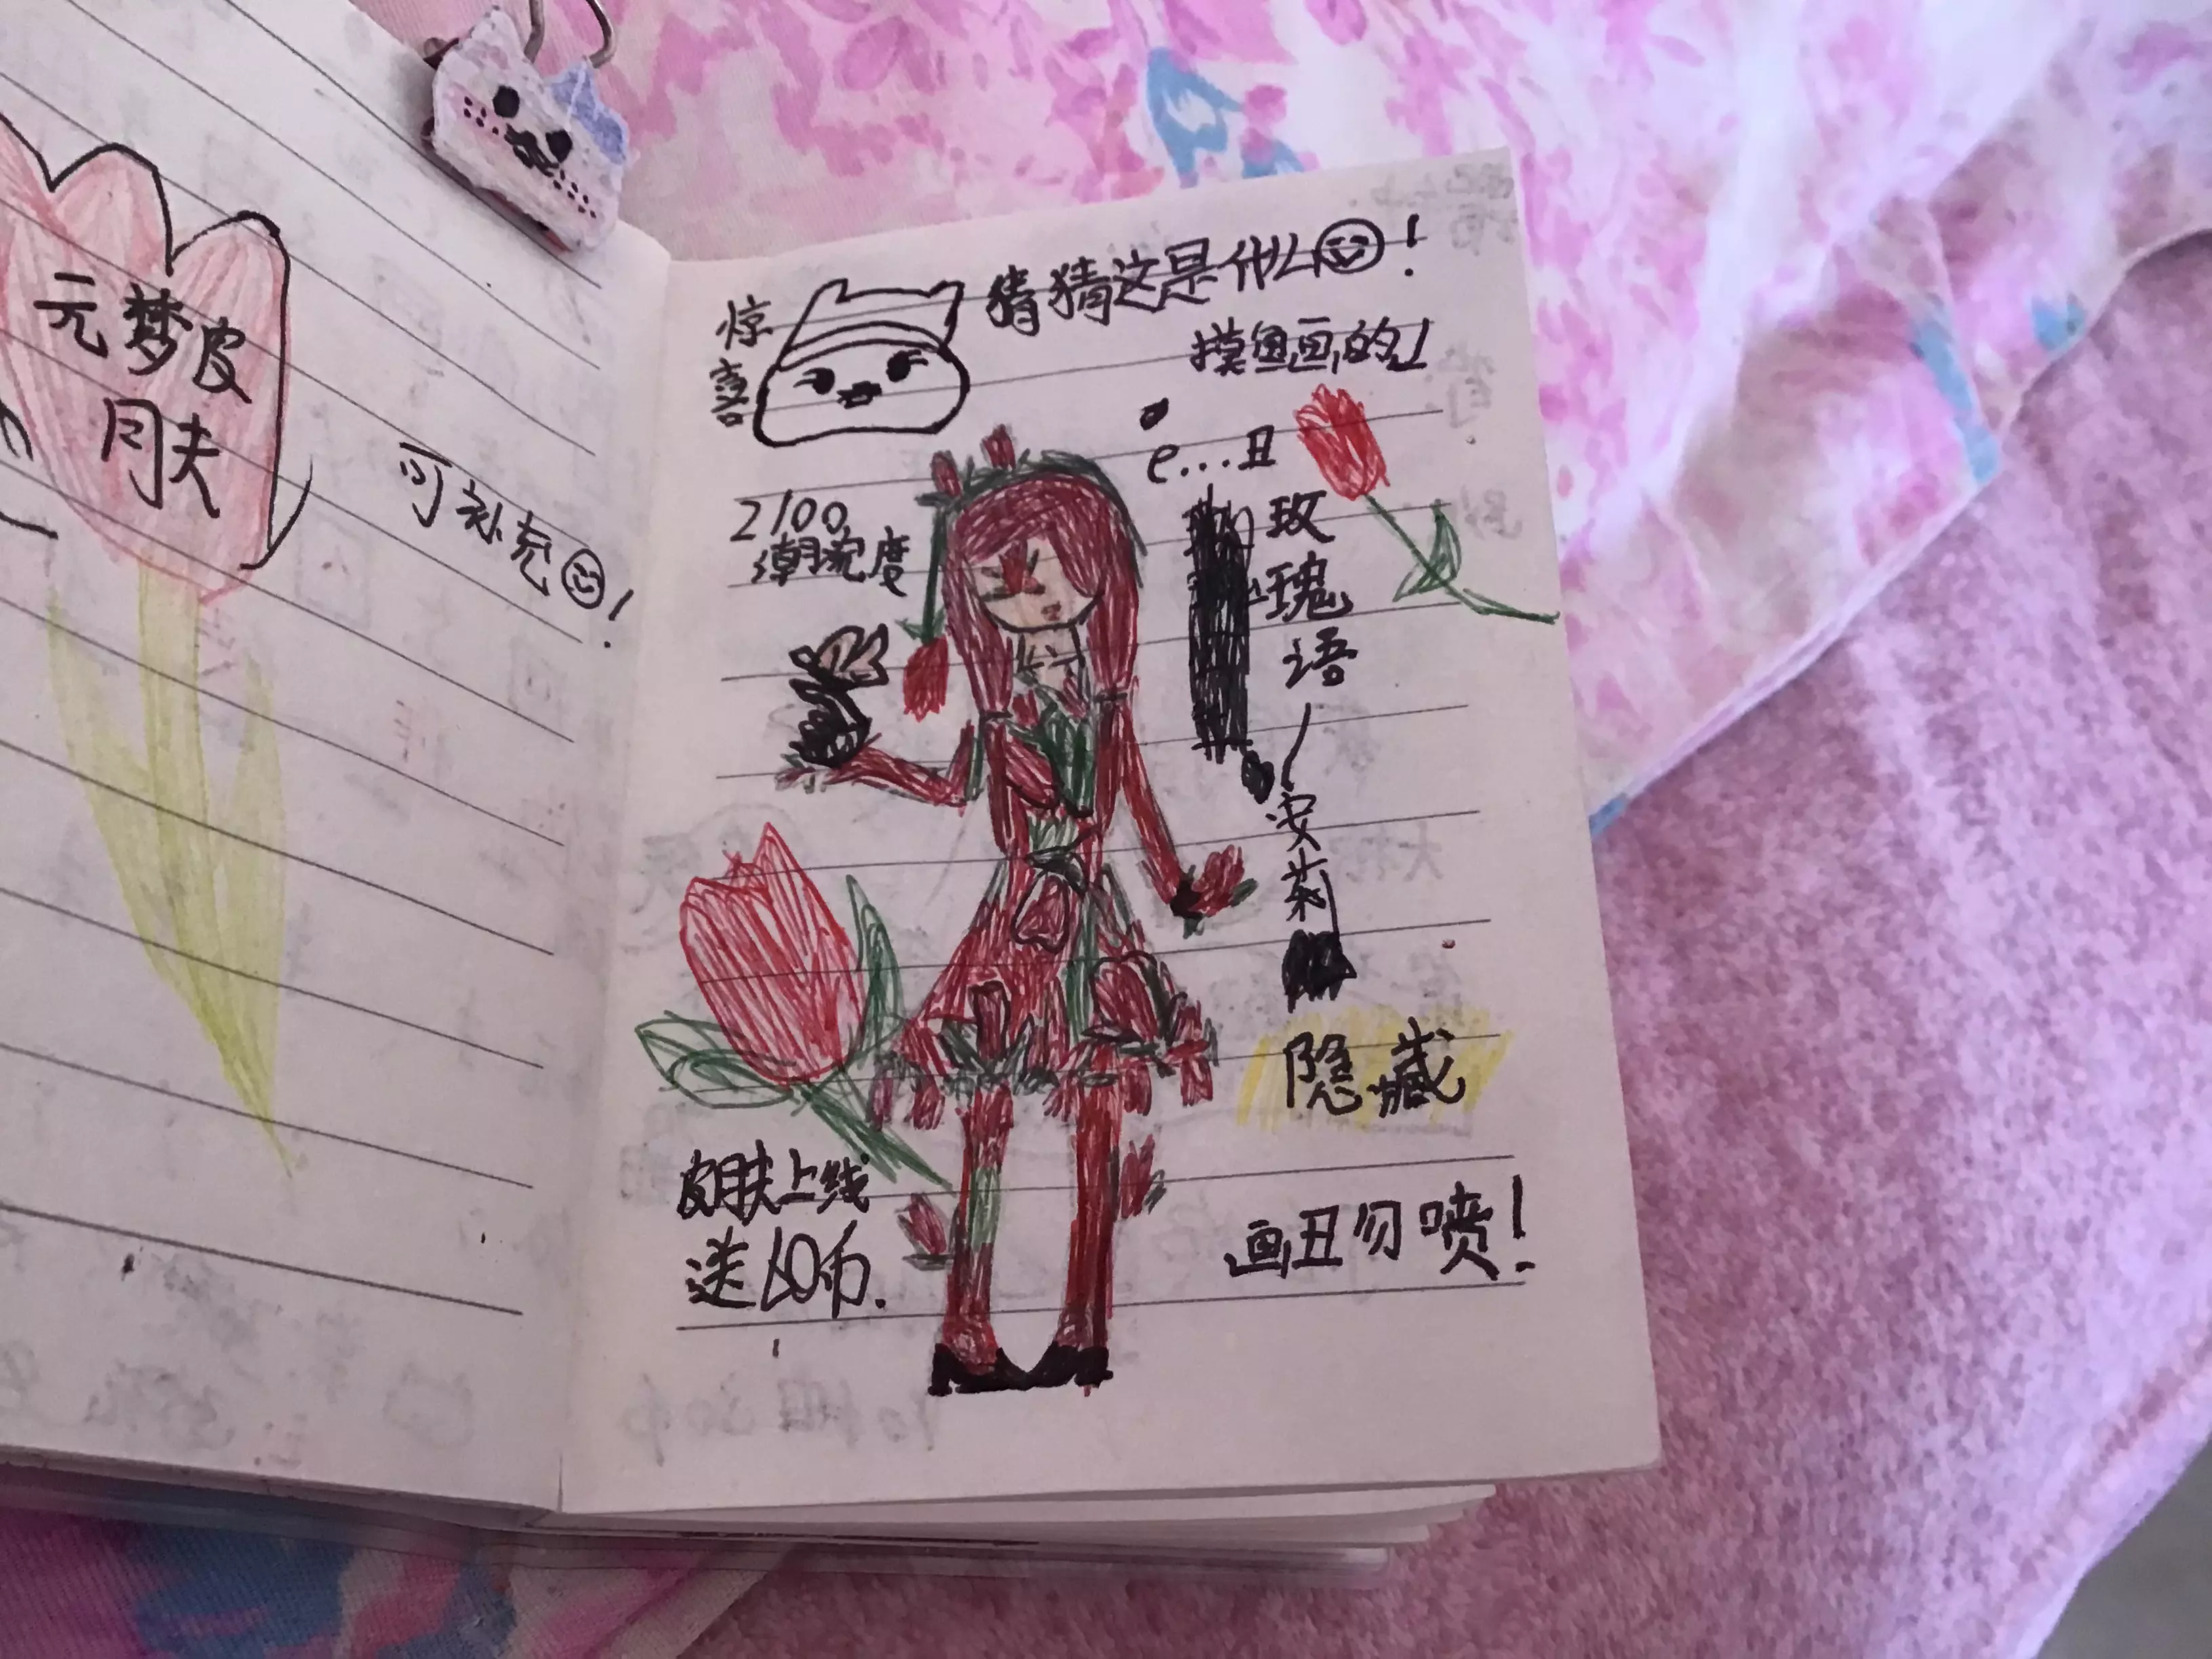 元梦皮
肤
可补充
!
惊
喜
猜猜这是什么
!
摸鱼画的!
e...丑
2100
潮流度
玫
瑰
语
安
莉
隐藏
皮肤上线
送60币.
画丑勿喷!